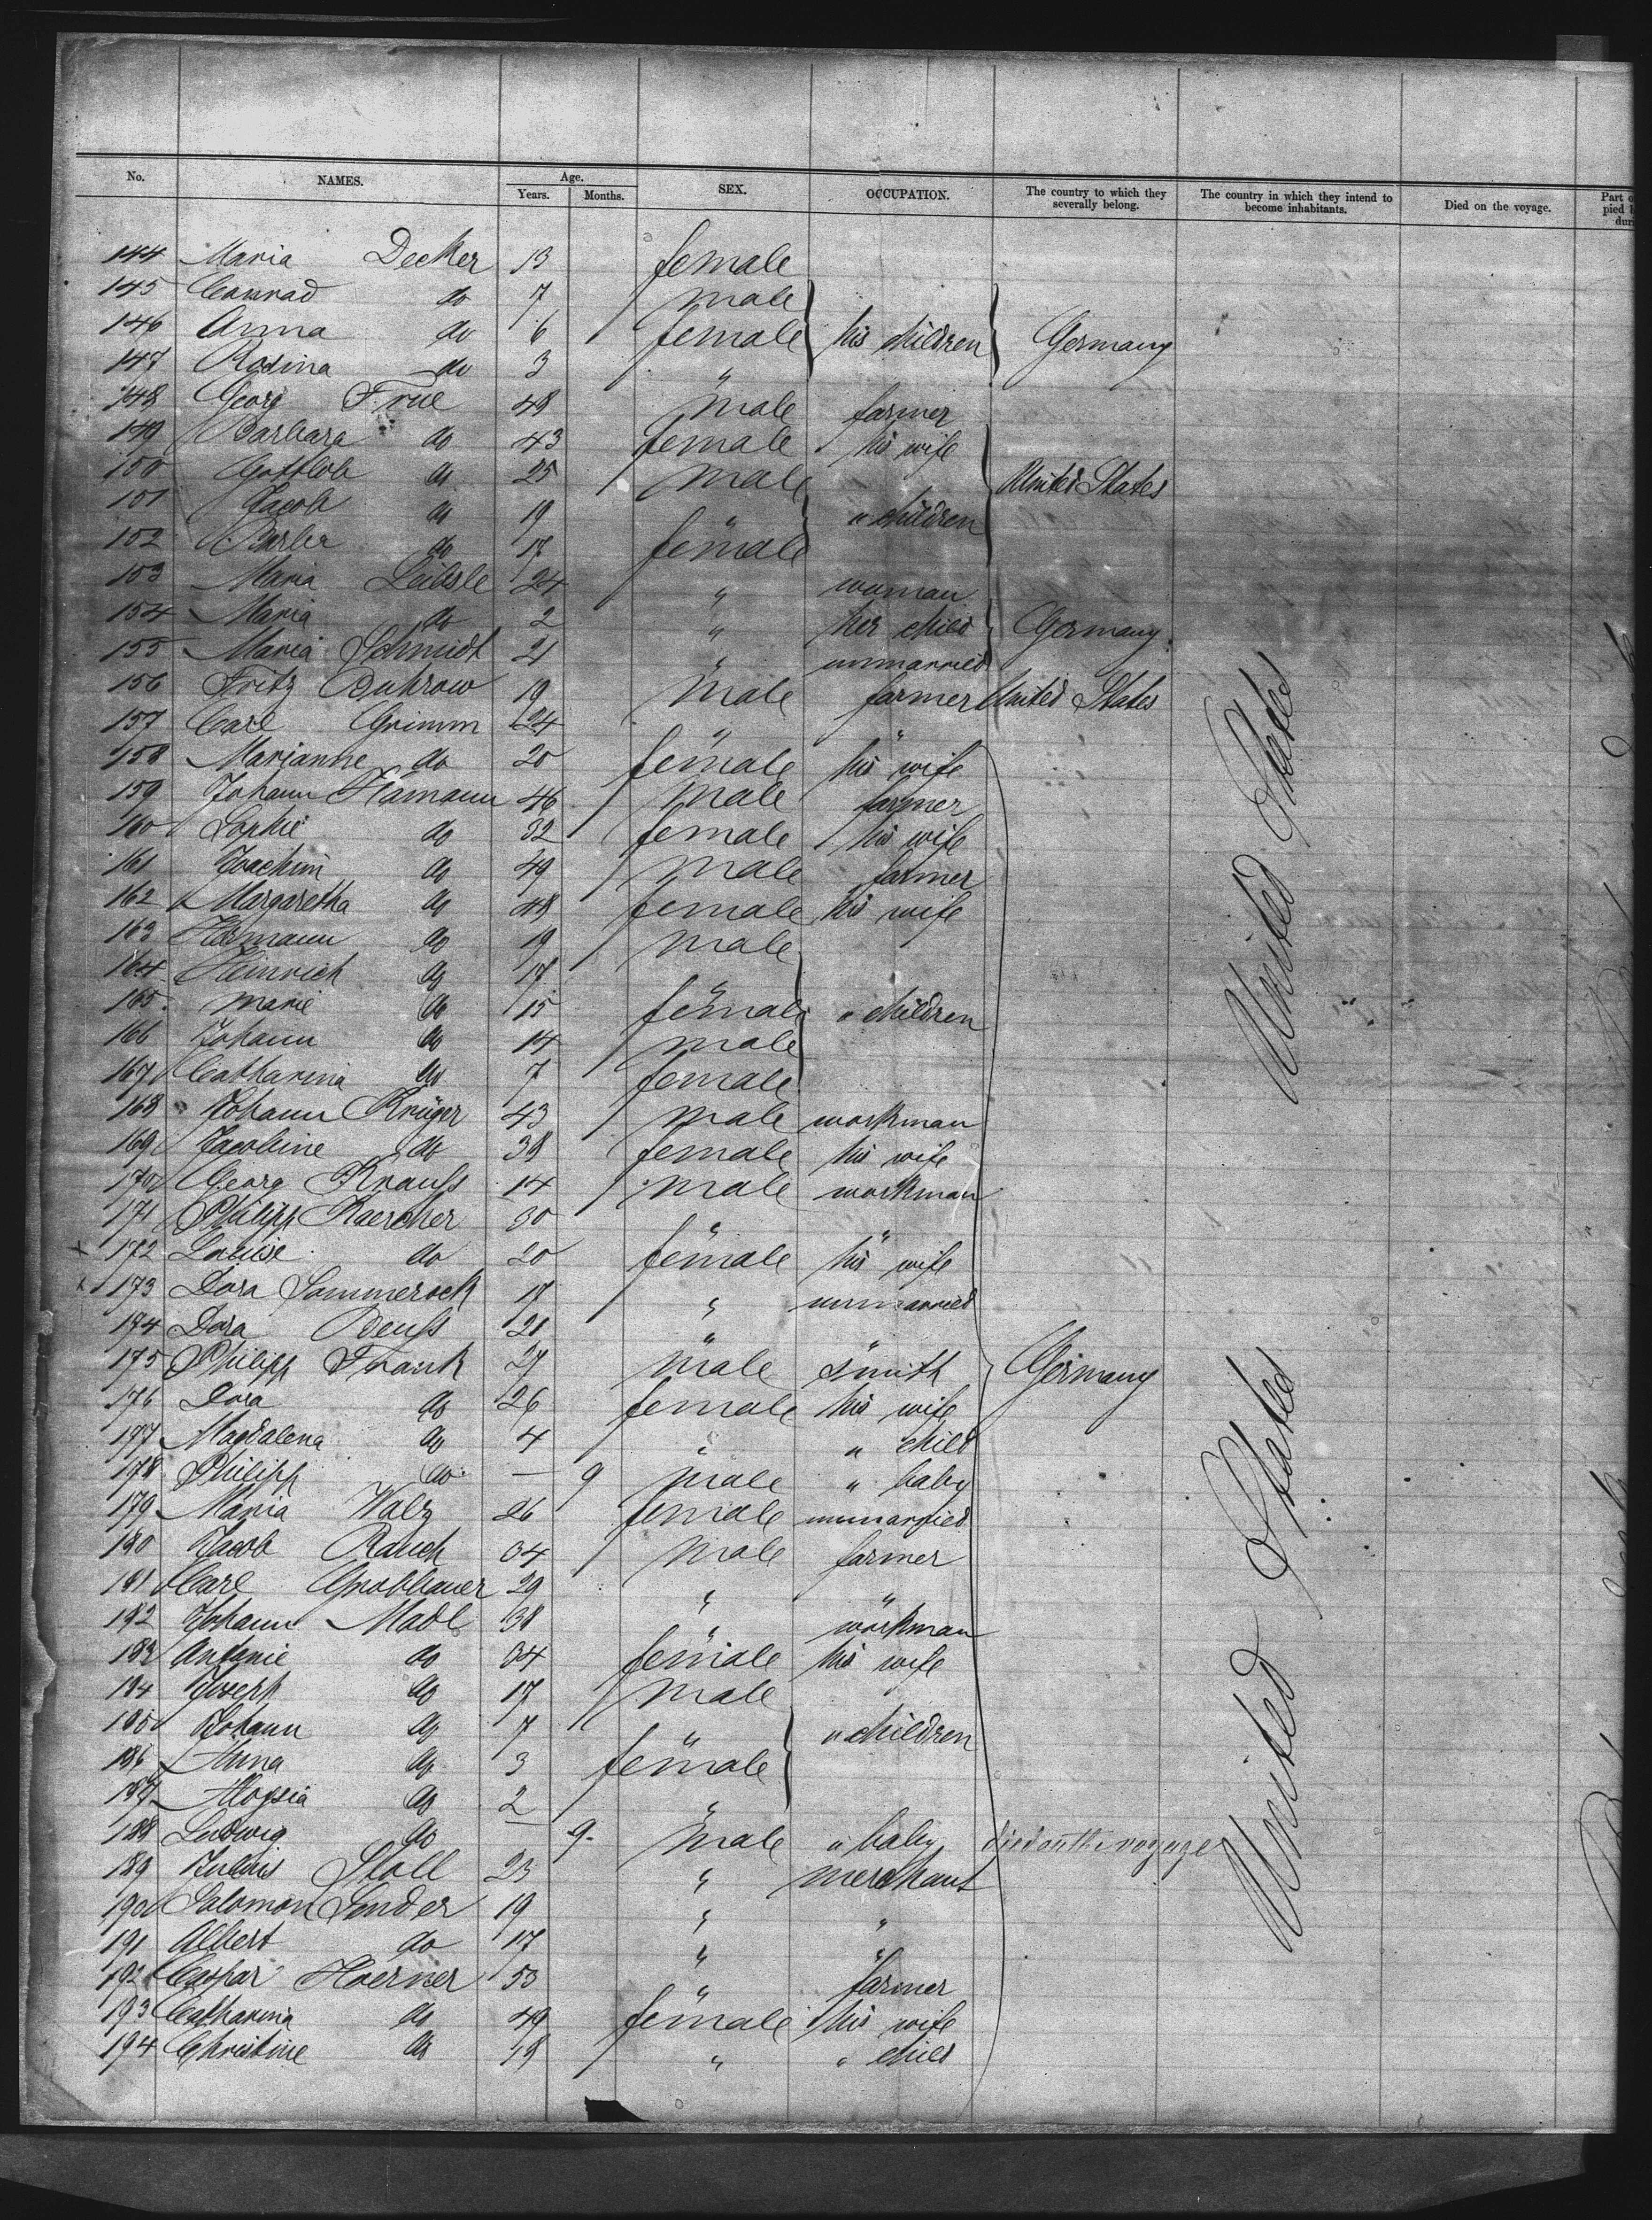 No. NAMES. Age. Years. Months. SEX. OCCUPATION. The country to which they severally belong. The country in which they intend to become inhabitants. Died on the voyage. Part
144 Maria Decker 13 female
145 Conrad do 7 male
146 Anna do 6 female his children Germany
147 Rosina do 3 "
148 Georg True 48 male farmer
149 Barbara do 43 female his wife
150 Gottlob do 25 male United States
151 Jacob do 19 " " children
152 Barba do 17 female
153 Maria 24 " woman
154 Maria do 2 " her child Germany
155 Maria Schmidt 21 " unmarried
156 Fritz Buhrow 19 male farmer United States
157 Carl Grimm 24 " "
158 Marianne do 20 female his wife
159 Johann Hamann 46 male farmer
160 Sophie do 32 female his wife
161 Joachim do 49 male farmer
162 Margaretha do 48 female his wife
163 Hermann do 19 male
164 Heinrich do 17 "
165 Marie do 15 female " children
166 Johann do 14 male
167 Catharina do 7 female
168 Johann Krüger 43 male workman
169 Jacobine do 38 female his wife
170 Georg Krauss 14 male workman
171 Philipp Kaercher 30 " "
x 172 Louise do 20 female his wife
x 173 Dora Sommerock 17 " unmarried
174 Dora Beuss 21 " "
175 Philipp Frank 27 male smith Germany
176 Dora do 26 female his wife
177 Magdalena do 4 " " child
178 Philipp do — 9 male " baby
179 Maria Walz 26 female unmarried
180 Jacob Rauch 34 male farmer
181 Carl Grobbauer 29 " "
182 Johann Madl 38 " workman
183 Antonie do 34 female his wife
184 Joseph do 17 male
185 Johann do 7 " " children
186 Anna do 3 female
187 Aloysia do 2 "
188 Ludwig do — 9 male " baby died on the voyage
189 Stoll 23 " merchant
190 Salomon Sender 19 " "
191 Albert do 17 " "
192 Caspar Hoerner 53 " farmer
193 Catharina do 49 female his wife
194 Christine do 18 " " child
United States
United States